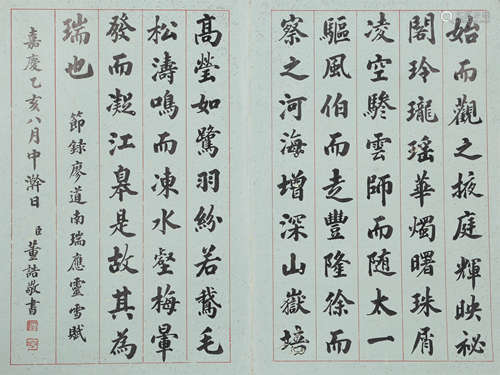 始而觀之掖庭輝映祕
閣玲瓏瑤華燭曙珠屑
凌空驂雲師而随太一
驅風伯而走豐隆徐而
察之河海增深山嶽培
高瑩如鷺羽紛若鵞毛
松濤鳴而凍水壑梅暈
發而凝江皋是故其為
瑞也
節録廖道南瑞應靈雪賦
嘉慶乙亥八月中澣日
臣董誥敬書